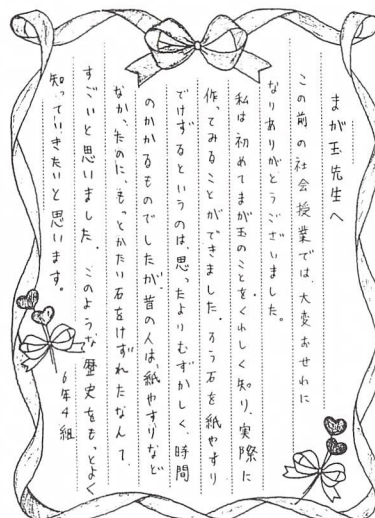 まが玉先生へ
この前の社会授業では、大変おせわに
なりありがとうございました。
私は初めてまが玉のことをくわしく知り、実際に
作ってみることができました。ろう石を紙やすり
でけずるというのは、思ったよりむずかしく、時間
のかかるものでしたが、昔の人は、紙やすりなど
なかったのに、もっとかたい石をけずれたなんて、
すごいと思いました。このような歴史をもっとよく
知っていきたいと思います。
6年4組